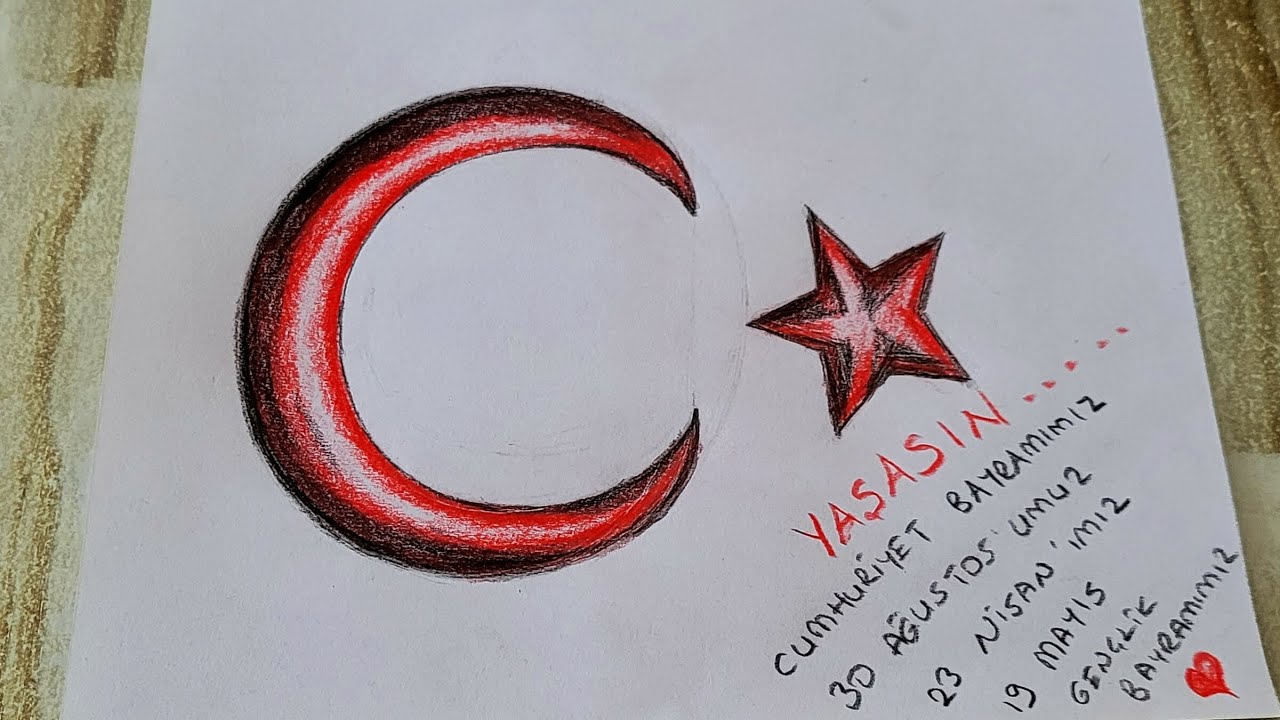 YAŞASIN......
CUMHURİYET BAYRAMIMIZ
30 AĞUSTOS'UMUZ
23 NİSAN'IMIZ
19 MAYIS
GENÇLİK
BAYRAMIMIZ